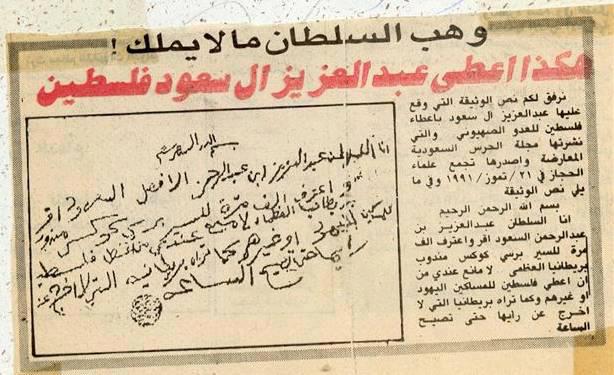 وهب السلطان مالايملك !
هكذا اعطى عبدالعزيز ال سعود فلسطين
نرفق لكم نص الوثيقة التي وقع
عليها عبدالعزيز ال سعود باعطاء
فلسطين للعدو الصهيوني والتي
نشرتها مجلة الحرس السعودية
المعارضة واصدرها تجمع علماء
الحجاز في ٢١/تموز/١٩٩١ وفي ما
يلي نص الوثيقة
بسم الله الرحمن الرحيم
انا السلطان عبدالعزيز بن
عبدالرحمن السعود اقر واعترف الف
مرة للسير برسي كوكس مندوب
بريطانيا العظمى لا مانع عندي من
ان اعطي فلسطين للمساكين اليهود
او غيرهم وكما تراه بريطانيا التي لا
اخرج عن رايها حتى تصيح
الساعة
بسم الله الرحمن الرحيم
انا السلطان عبدالعزيز ابن عبدالرحمن الفيصل السعود اقر
و اعترف الف مرة للسير برسي كوكس مندوب
بريطانيا العظمى لا مانع عندي
او غيرهم كما تراه بريطانيه التي لا اخرج عن
رايها حتى تصيح الساعه